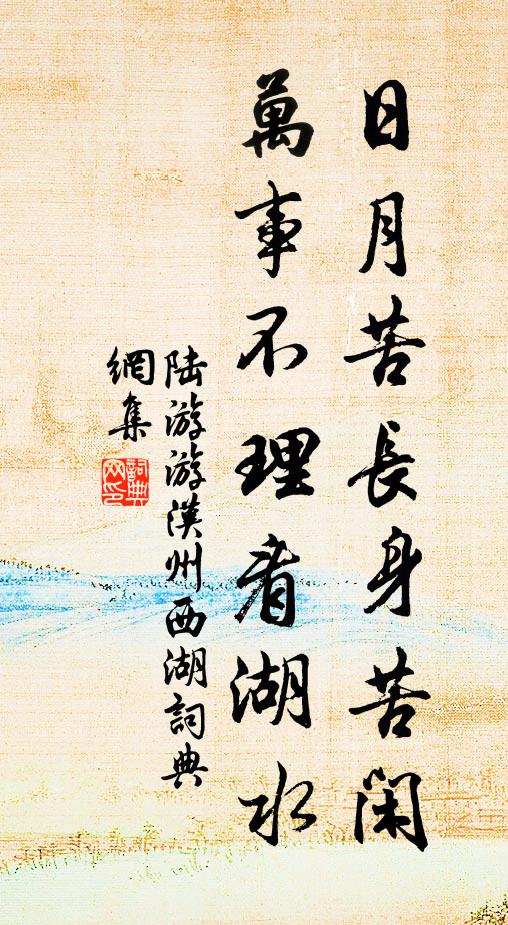 日月苦長身苦閑
萬事不理看湖水
陆游游漢州西湖詞典
網集
詞典
网印